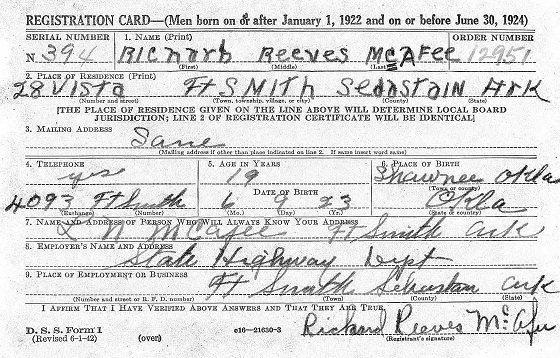 REGISTRATION CARD—(Men born on or after January 1, 1922 and on or before June 30, 1924)
SERIAL NUMBER 1. NAME (Print) ORDER NUMBER
N 394 RICharb Reeves McAFee 12951
(First) (Middle) (Last)
2. PLACE OF RESIDENCE (Print)
28 Vista Ft SMITH SebasTaIN Ark
(Number and street) (Town, township, village, or city) (County) (State)
[THE PLACE OF RESIDENCE GIVEN ON THE LINE ABOVE WILL DETERMINE LOCAL BOARD
JURISDICTION; LINE 2 OF REGISTRATION CERTIFICATE WILL BE IDENTICAL]
3. MAILING ADDRESS
Same
(Mailing address if other than place indicated on line 2. If same insert word same)
4. TELEPHONE 5. AGE IN YEARS 6. PLACE OF BIRTH
yes 19 Shawnee Okla
(Town or county)
DATE OF BIRTH
4093 Ft Smith 6 9 23 Okla
(Exchange) (Number) (Mo.) (Day) (Yr.) (State or country)
7. NAME AND ADDRESS OF PERSON WHO WILL ALWAYS KNOW YOUR ADDRESS
L N McAfee Ft Smith Ark
8. EMPLOYER'S NAME AND ADDRESS
State Highway Dept
9. PLACE OF EMPLOYMENT OR BUSINESS
Ft Smith Sebastian Ark
(Number and street or R. F. D. number) (Town) (County) (State)
I AFFIRM THAT I HAVE VERIFIED ABOVE ANSWERS AND THAT THEY ARE TRUE.
Richard Reeves McAfee
D. S. S. Form 1 e16—21630-3 (Registrant's signature)
(Revised 6-1-42) (over)